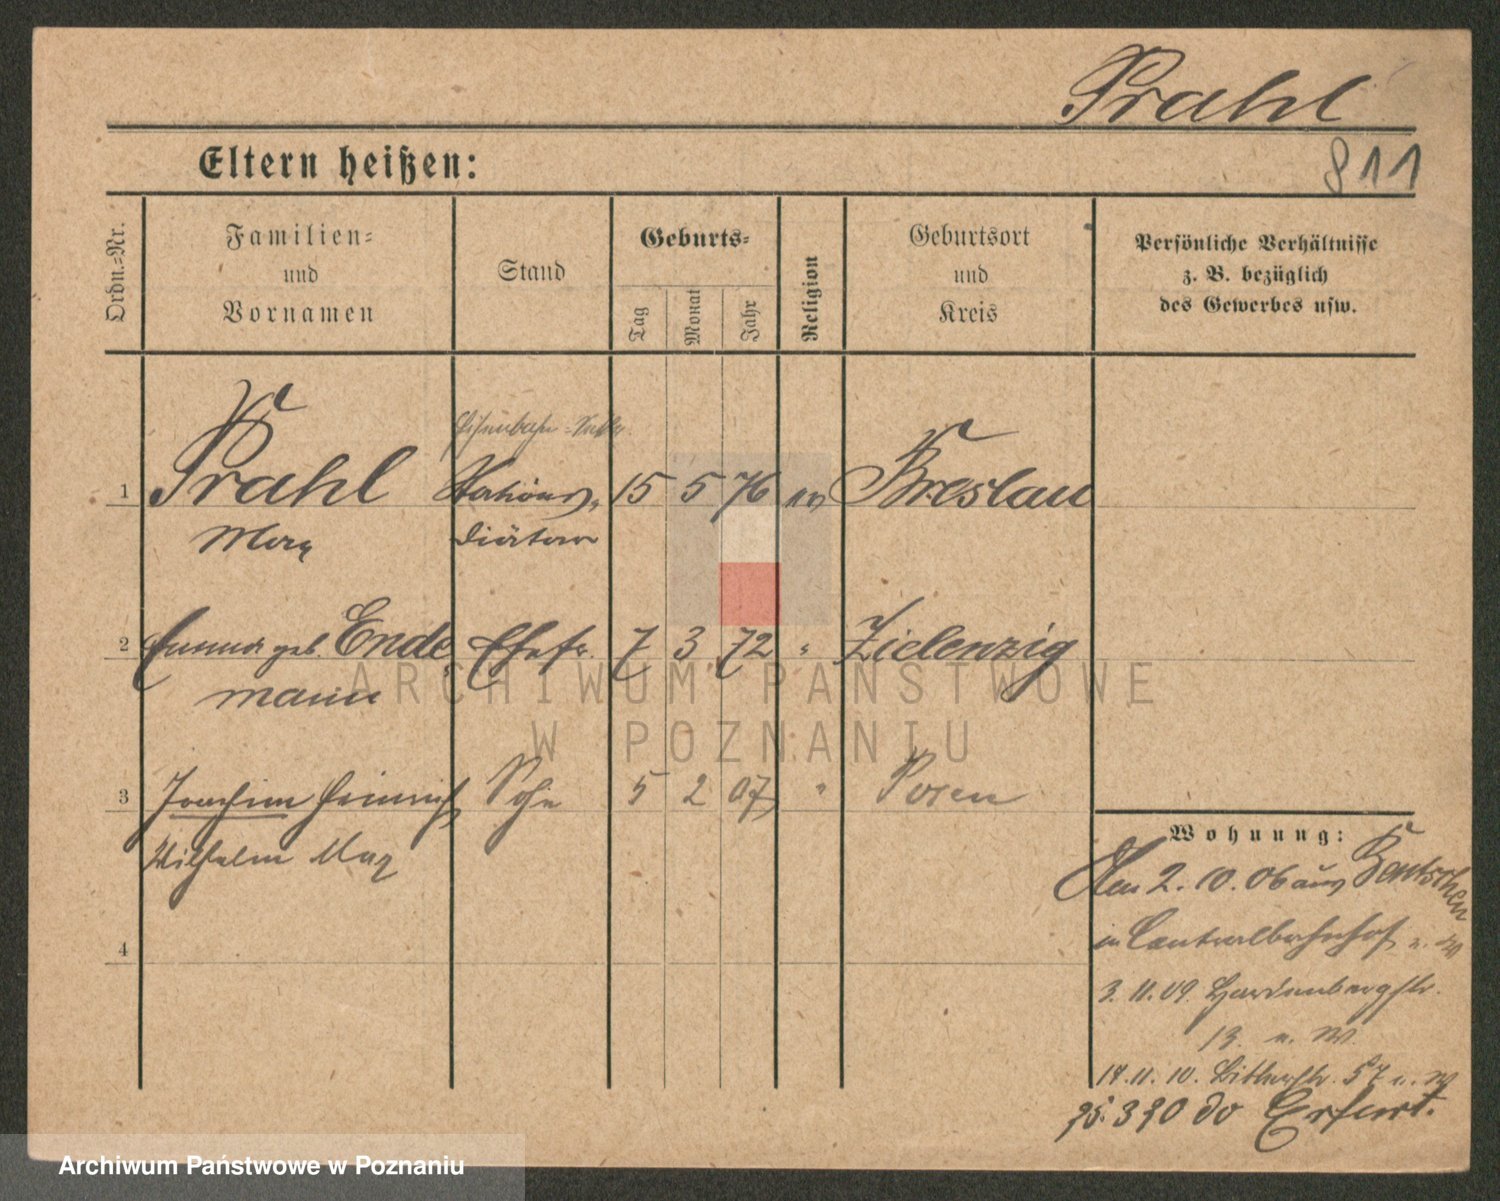 Prahl
Eltern heißen:
811
Ordn.-Nr.
Familien-
und
Vornamen
Stand
Geburts-
Tag
Monat
Jahr
Religion
Geburtsort
und
Kreis
Persönliche Verhältnisse
z. B. bezüglich
des Gewerbes usw.
Eisenbahn-
1 Prahl Stations- 15 5 76 ev Breslau
Max Diätar
2 Emma geb. Ende Ehefr. 7 3 72 " Zielenzig
mann
ARCHIWUM PAŃSTWOWE
W POZNANIU
3 Joachim Heinrich Sohn 5 2 07 " Posen
Wilhelm Max
4
Wohnung:
Den 2. 10. 06 aus Bentschen
in Centralbahnhof u. W
3. 11. 09. Hardenbergstr.
13. u. W.
14. 11. 10. 57 u. W
do Erfurt.
Archiwum Państwowe w Poznaniu